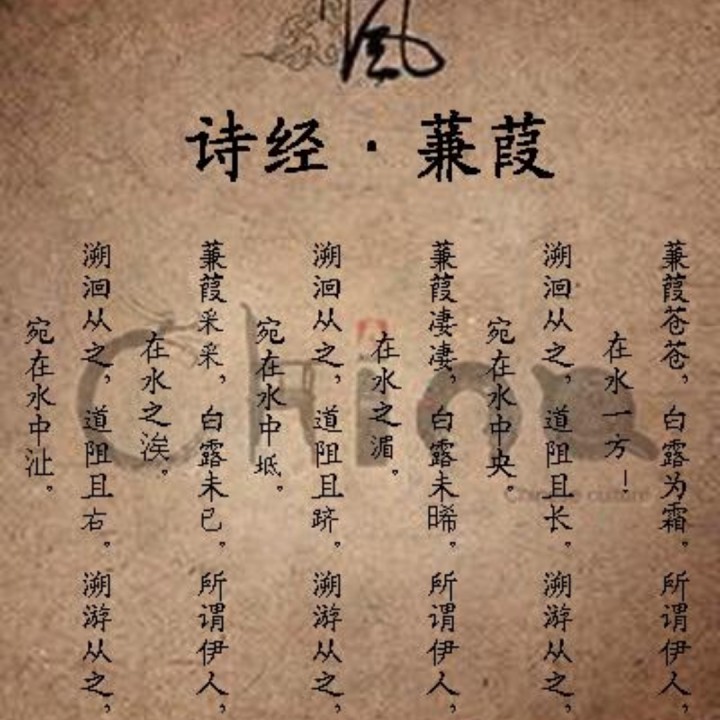 風
诗经·蒹葭
蒹葭苍苍，白露为霜。所谓伊人，
在水一方—
溯洄从之，道阻且长。溯游从之，
宛在水中央。
蒹葭凄凄，白露未晞。所谓伊人，
在水之湄。
溯洄从之，道阻且跻。溯游从之，
宛在水中坻。
蒹葭采采，白露未已。所谓伊人，
在水之涘。
溯洄从之，道阻且右。溯游从之，
宛在水中沚。
China
Chinese culture